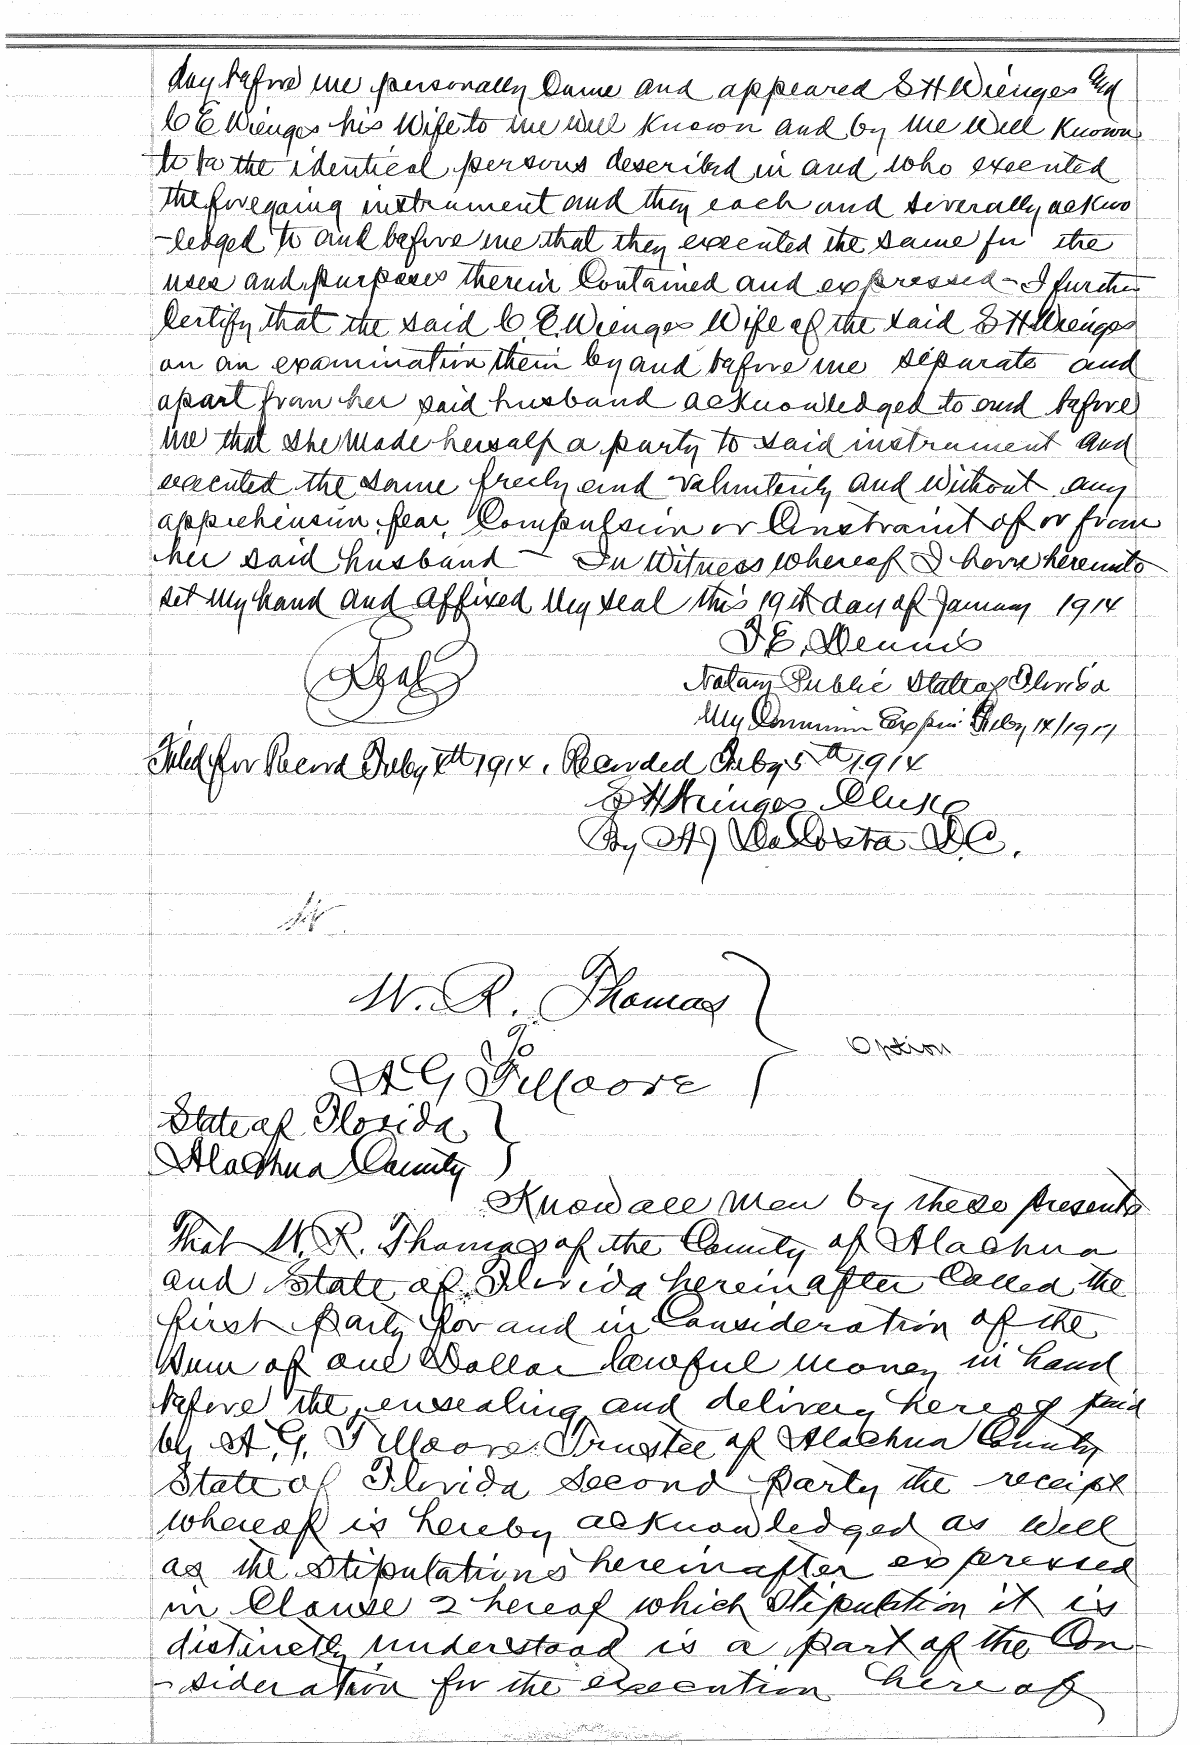 day before me personally Came and appeared S H Wienges and
C E Wienges his Wife to me well Known and by me Well Known
to be the identical persons described in and who executed
the foregoing instrument and they each and severally acknow
-ledged to and before me that they executed the same for the
uses and purposes therein Contained and expressed - I further
Certify that the said C E Wienges Wife of the said S H Wienges
on an examination them by and before me separate and
apart from her said husband acknowledged to and before
me that she Made herself a party to said instrument and
executed the same freely and voluntarily and without any
apprehension, fear, Compulsion or Constraint of or from
her said husband - In Witness whereof I have hereunto
set My hand and affixed My seal this 19th day of January 1914
Seal J. E. Dennis
Notary Public State of Florida
My Commission Expires Feby 14/19
Filed for Record Feby 4th 1914. Recorded Feby 5th 1914
S H Wienges Clerk
By A J DaCosta D.C.
W. R. Thomas
To Option
A G Fillmoore
State of Florida
Alachua County
Know all Men by these presents
That W. R. Thomas of the County of Alachua
and State of Florida hereinafter Called the
first party for and in Consideration of the
sum of one Dollar lawful money in hand
before the ensealing and delivery hereof paid
by A. G. Fillmoore Trustee of Alachua County
State of Florida second party the receipt
whereof is hereby acknowledged as well
as the stipulations hereinafter expressed
in Clause 2 hereof which stipulation it is
distinctly understood is a part of the Con-
-sideration for the execution hereof